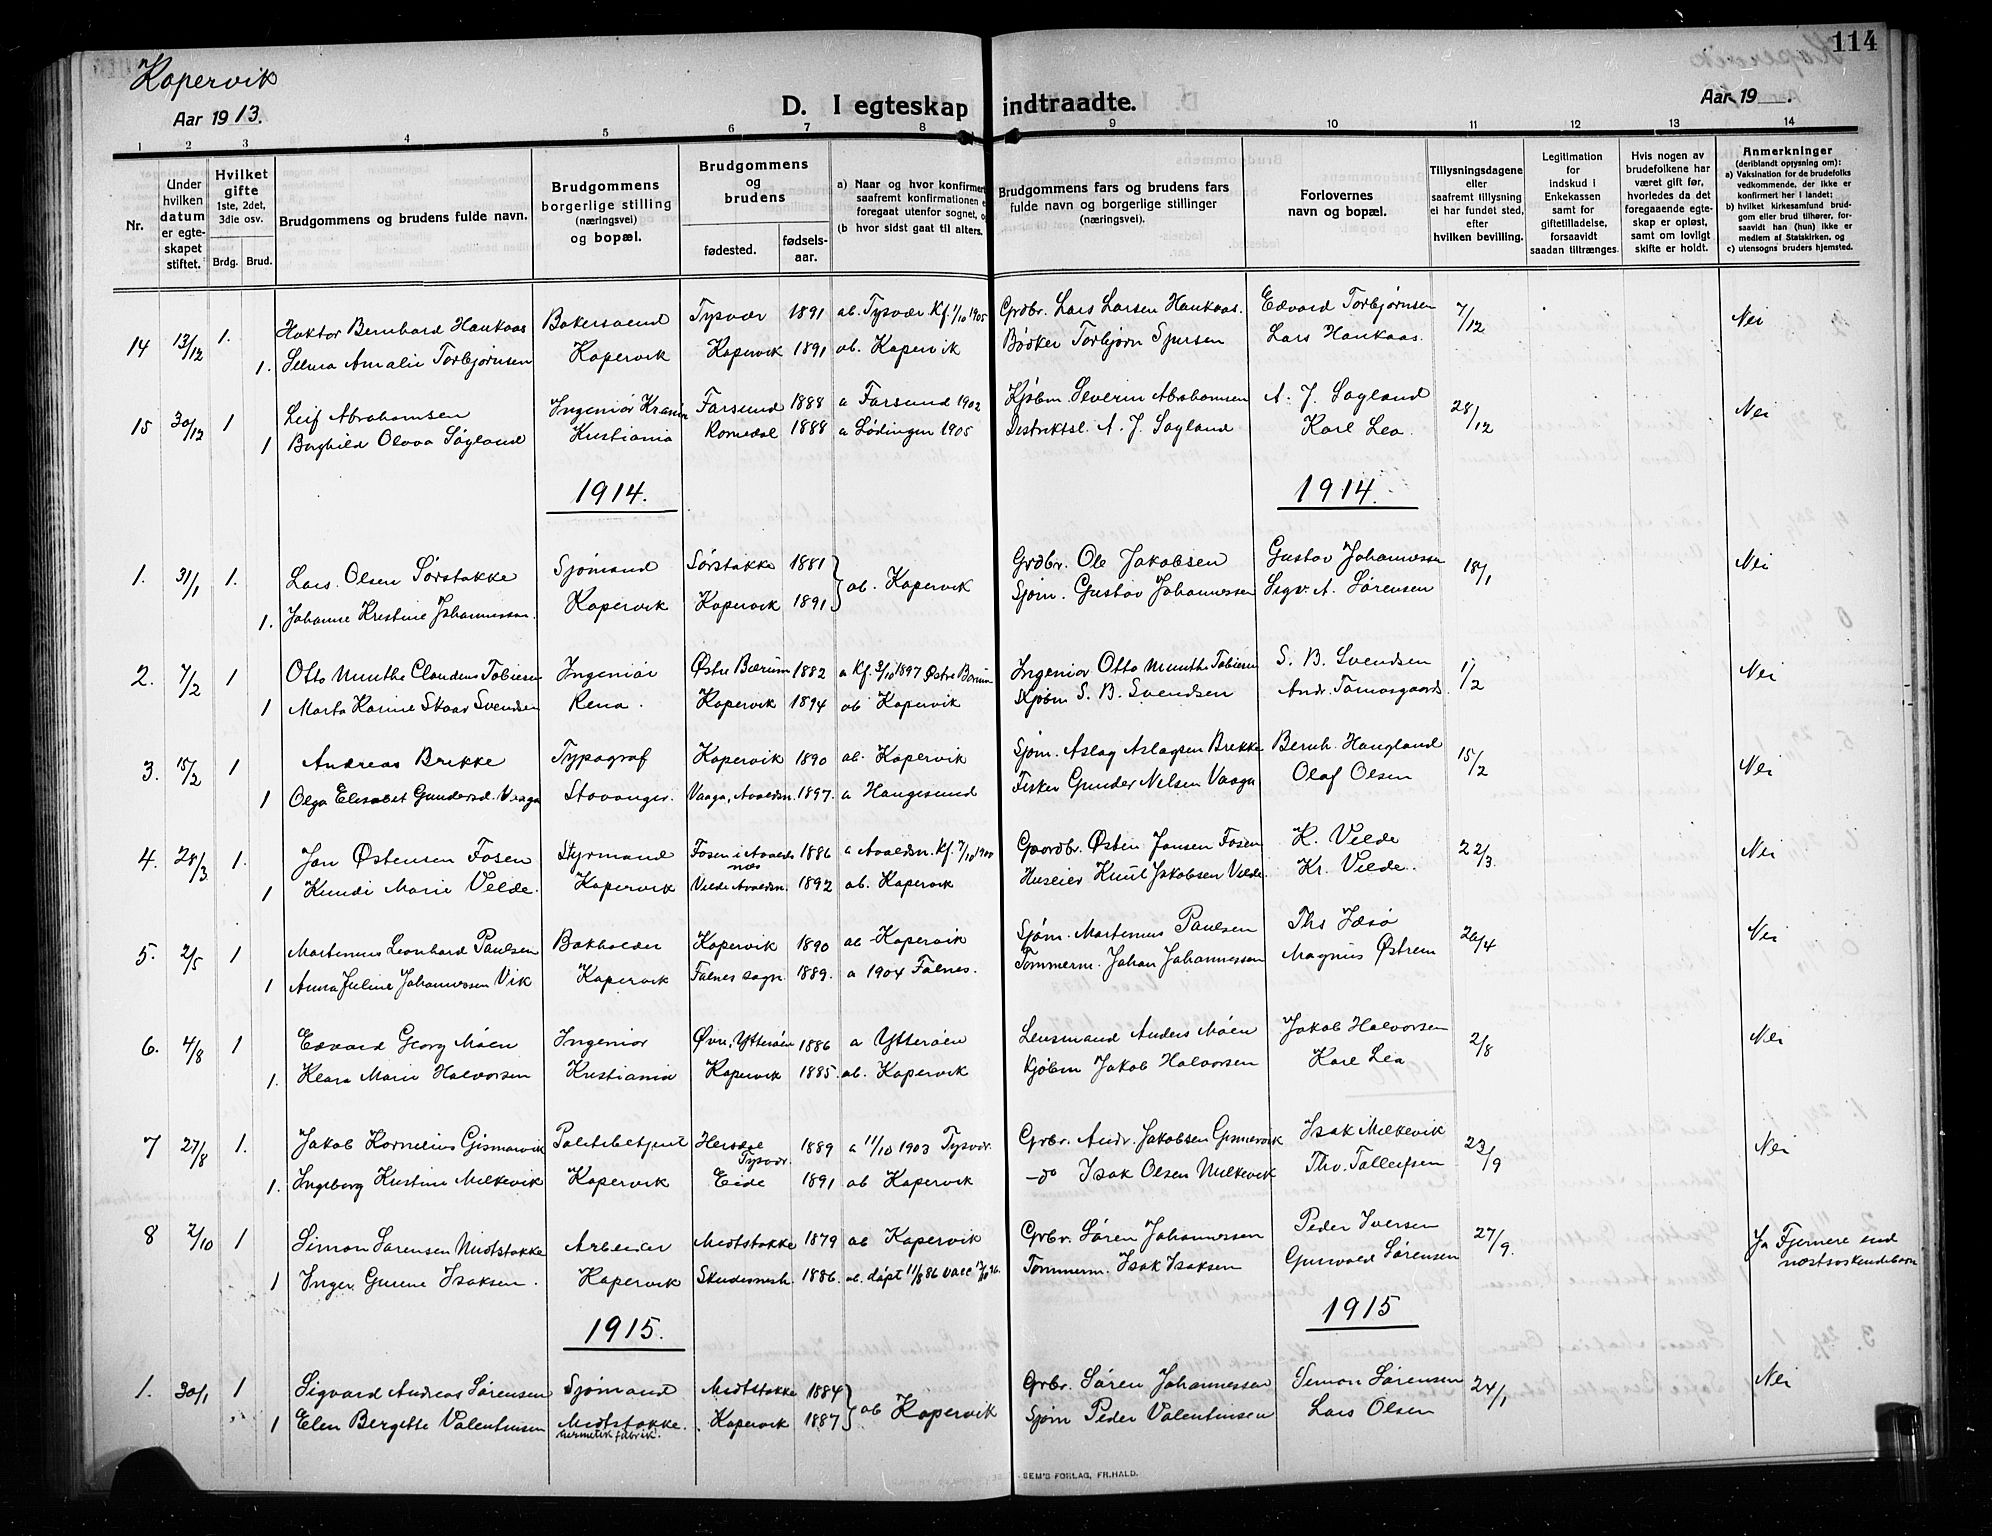 114
Kopervik
Aar 1913.
D. I egteskap indtraadte.
Aar 19 .
1 2 3 4 5 6 7 8 9 10 11 12 13 14
Nr.
Under hvilken datum er egteskapet stiftet.
Hvilket gifte 1ste, 2det, 3die osv.
Brdg. Brud.
Brudgommens og brudens fulde navn.
Brudgommens borgerlige stilling (næringsvei) og bopæl.
Brudgommens og brudens
fødested. fødselsaar.
a) Naar og hvor konfirmert saafremt konfirmationen er foregaat utenfor sognet, og
(b hvor sidst gaat til alters.
Brudgommens fars og brudens fars fulde navn og borgerlige stillinger (næringsvei).
Forlovernes navn og bopæl.
Tillysningsdagene eller saafremt tillysning ei har fundet sted, efter hvilken bevilling.
Legitimation for indskud i Enkekassen samt for giftetilladelse, forsaavidt saadan tiltrænges.
Hvis nogen av brudefolkene har været gift før, hvorledes da det foregaaende egteskap er opløst, samt om lovligt skifte er holdt.
Anmerkninger (deriblandt oplysning om):
a) Vaksination for de brudefolks vedkommende, der ikke er konfirmert her i landet;
b) hvilket kirkesamfund brudgom eller brud tilhører, forsaavidt han (hun) ikke er medlem af Statskirken, og
c) utensogns bruders hjemsted.
14 13/12 1. Haktor Bernhard Haukaas Bakersvend Tysvær 1891 ab. Tysvær Kf. 1/10 1905 Grdbr. Lars Larsen Haukaas. Edvard Torbjørnsen 7/12 Nei
1. Selma Amalie Torbjørnsen Kopervik Kopervik 1891 ab. Kopervik Bødker Torbjørn Sjursen Lars Haukaas.
15 30/12 1 Leif Abrahamsen Ingeniør Farsund 1888 a Farsund 1902 Kjøbm. Severin Abrahamsen A. J. Søyland 28/12 Nei
1 Borghild Olava Søyland Kristiania Romedal 1888 a Lødingen 1905 Distriktsl. A. J. Søyland Karl Lea.
1914. 1914.
1. 31/1 1. Lars Olsen Sørstokke Sjømand Sørstokke 1881 ab. Kopervik Grdbr. Ole Jakobsen Gustav Johannessen 18/1 Nei
1. Johanne Kristine Johannessen. Kopervik Kopervik 1891 Sjøm. Gustav Johannessen Sigv. A. Sørensen
2. 7/2 1 Otto Munthe Claudens Tobiesen Ingeniør Østre Bærum 1882 a Kf. 3/10 1897 Østre Bærum Ingeniør Otto Munthe Tobiesen S. B. Svendsen 1/2 Nei
1 Marta Karine Skaar Svendsen Rena. Kopervik 1894 ab Kopervik Kjøbm S. B. Svendsen Andr. Tamosgaard.
3. 15/2 1 Andreas Brekke Typograf Kopervik 1890 ab. Kopervik Sjøm. Aslag Aslagsen Brekke Bernh. Haugland 15/2 Nei
1 Olga Elisabet Gundersd. Vaaga Stavanger. Vaaga, Avaldsn. 1897. a Haugesund Fisker Gunder Nilsen Vaaga Olaf Olsen
4. 28/3 1. Jan Østensen Fosen Styrmand Fosen i Avaldsnæs 1886 a Avaldsn. Kf. 7/10 1900 Gaardbr. Østen Jansen Fosen K. Velde 22/3. Nei
1 Kundi Marie Velde. Kopervik Velde Avaldsn. 1892 ab. Kopervik Huseier Knut Jakobsen Velde. Kr. Velde.
5. 2/5 1 Martenus Leonhard Paulsen Bokholder Kopervik 1890 ab Kopervik Sjøm. Martenus Paulsen Ths Ydsø 26/4 Nei
1 Anna Juline Johannessen Vik Kopervik Falnes sogn. 1889. a 1904 Falnes. Tømmerm. Johan Johannessen Magnus Østrem
6. 4/8 1 Edvard Georg Moen Ingeniør Øvre, Ytterøen 1886 a Ytterøen Lensmand Anders Moen Jakob Halvorsen 2/8 Nei
1. Klara Marie Halvorsen Kristiania Kopervik 1885. ab. Kopervik Kjøbm Jakob Halvorsen Karl Lea
7 27/8 1. Jakob Kornelius Gismarvik Politibetjent Hesdal Tysvær. 1889 a 11/10 1903 Tysvær. Grbr. Andr. Jakobsen Gismarvik Isak Melkevik 23/9 Nei
1. Ingeborg Kristine Melkevik Kopervik Eide 1891 ab Kopervik -do Isak Olsen Melkevik Thv. Tolleifsen
8 2/10 1 Simon Sørensen Midtstokke Arbeider Midtstokke 1879 ab Kopervik Grbr. Søren Johannessen Peder Iversen 27/9. Ja Fjernere end næstsøskendebarn
1 Inger Gurine Isaksen. Kopervik Skudenesh. 1886. ab. døpt 11/8 86 Tømmerm. Isak Isaksen Gunvald Sørensen
1915. 1915
1. 30/1 1 Sigvard Andreas Sørensen Sjømand Midtstokke 1884 ab Kopervik Grbr. Søren Johannessen Simon Sørensen 24/1 Nei
1 Elen Bergitte Valentinsen Midtstokke. hermetikfabrik. Kopervik 1887 Sjøm Peder Valentinsen Lars Olsen
SEM'S FORLAG, FR.HALD.